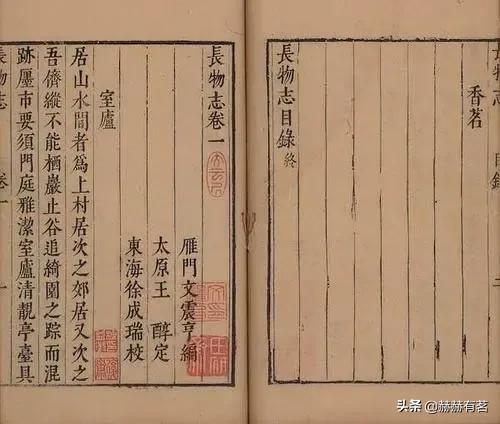 長物志 目錄 二
香茗
長物志目錄終
長物志卷一
雁門文震亨編
太原王醇定
東海徐成瑞校
室廬
居山水間者爲上村居次之郊居又次之
吾儕縱不能栖巖止谷追綺園之踪而混
跡廛市要須門庭雅潔室廬清靚亭臺具
長物志 卷一 一
头条 @赫赫有茗